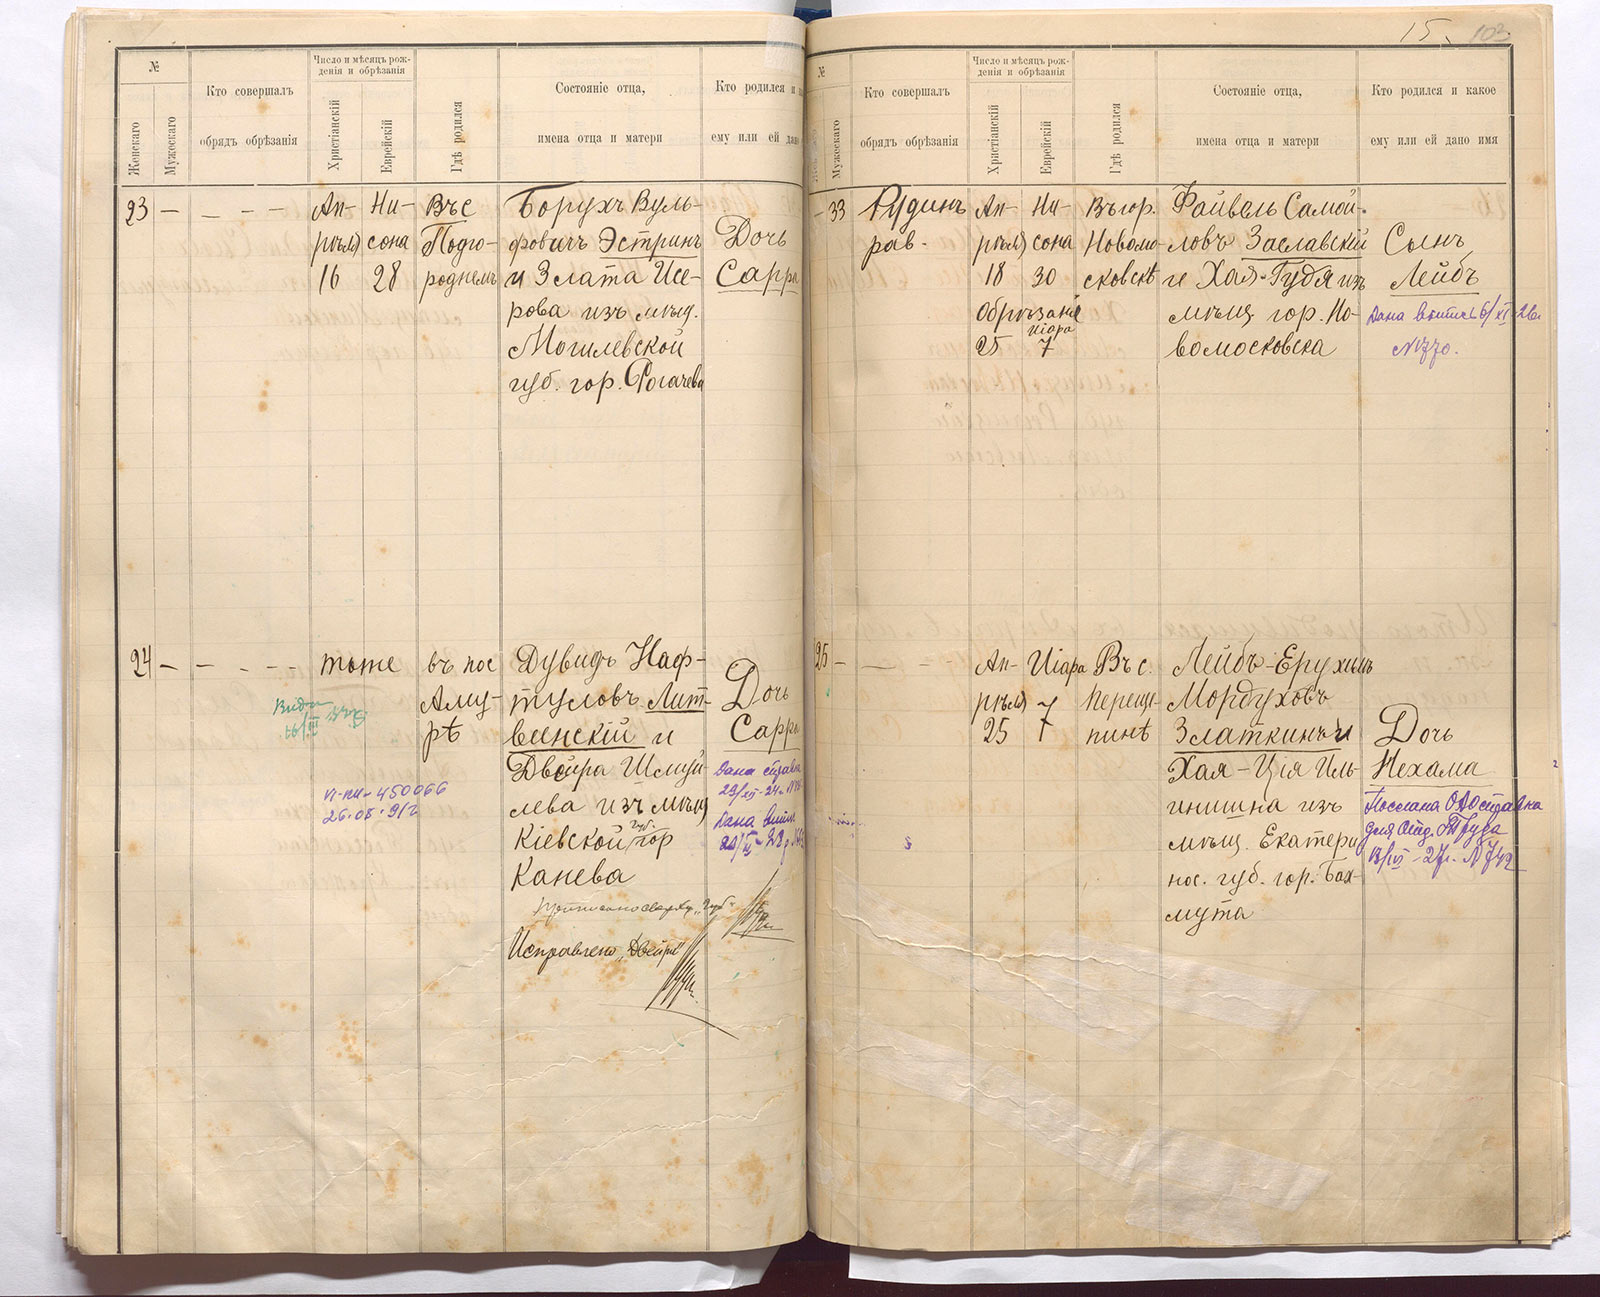 №
Женскаго
Мужескаго
Кто совершалъ
обрядъ обрѣзанія
Число и мѣсяцъ рож-
денія и обрѣзанія
Христіанскій
Еврейскій
Гдѣ родился
Состояніе отца,
имена отца и матери
Кто родился и
ему или ей дано
23
Ап-
рѣля
16
Ни-
сона
28
Въ с
Подго-
роднемъ
Борухъ Вуль-
фовичъ Эстринъ
и Злата Исе-
рова изъ мѣщ.
Могилевской
губ. гор. Рогачева
Дочь
Сарра
24
тоже
въ пос
Аму-
рѣ
Дувидъ Наф-
туловъ Лит-
венскій и
Двейра Шмуй-
лева изъ мѣщ
Кіевской губ. гор
Канева
Исправлено „Двейра"
Дочь
Сарра
VI-ПИ-450066
26.05.91г
Дана справка
Дана выпись
15. 103
№
Мужескаго
Кто совершалъ
обрядъ обрѣзанія
Число и мѣсяцъ рож-
денія и обрѣзанія
Христіанскій
Еврейскій
Гдѣ родился
Состояніе отца,
имена отца и матери
Кто родился и какое
ему или ей дано имя
33
Рудинъ
рав.
Ап-
рѣля
18
Обрѣзаніе
25
Ни-
сона
30
Ніара
7
Въ гор.
Новомо-
сковскѣ
Файвель Самой-
ловъ Заславскій
и Хая-Гудя изъ
мѣщ гор. Но-
вомосковска
Сынъ
Лейбъ
Дана выпись 6/XI-26г.
№ 770.
25
Ап-
рѣля
25
Иіара
7
Въ с.
Перещи-
пинѣ
Лейбъ-Ерухимъ
Мордуховъ
Златкинъ и
Хая-Ція Иль-
инишна изъ
мѣщ. Екатери
нос. губ. гор. Бах-
мута
Дочь
Нехама